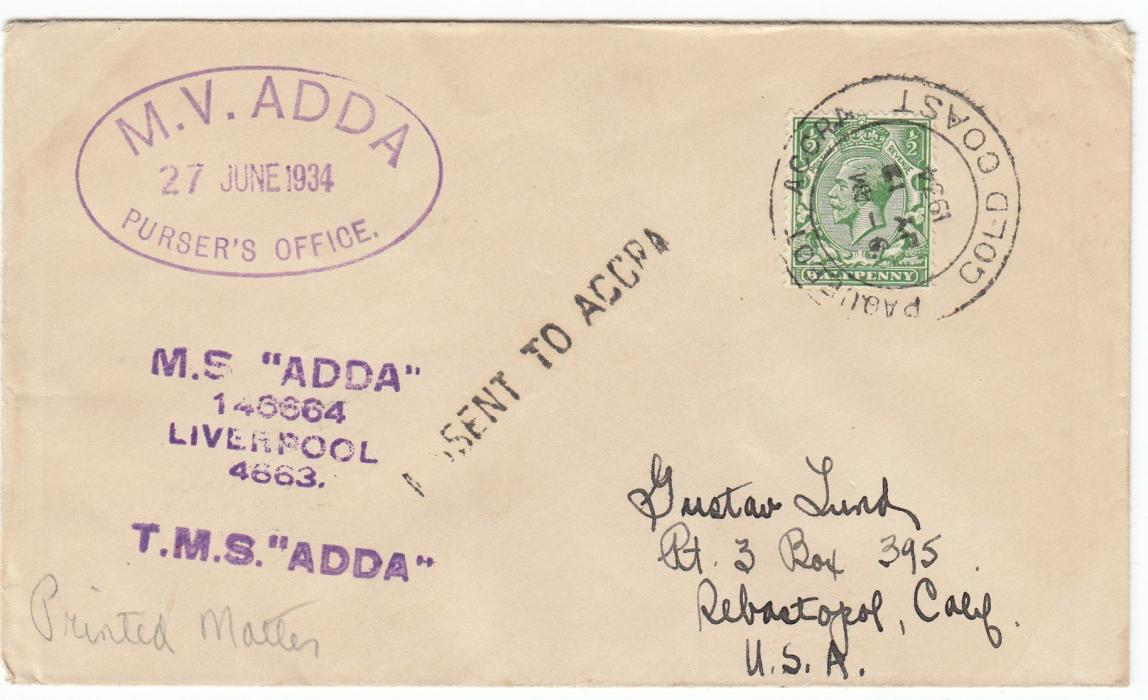 M.V. ADDA
27 JUNE 1934
PURSER'S OFFICE.
PAQUEBOT ACCRA
GOLD COAST
1934
½
REVENUE
HALFPENNY
SENT TO ACCRA
M.S "ADDA"
146664
LIVERPOOL
4663.
T.M.S. "ADDA"
Printed Matter
Gustav Lund
Rt. 3 Box 395
Sebastopol, Calif.
U.S.A.